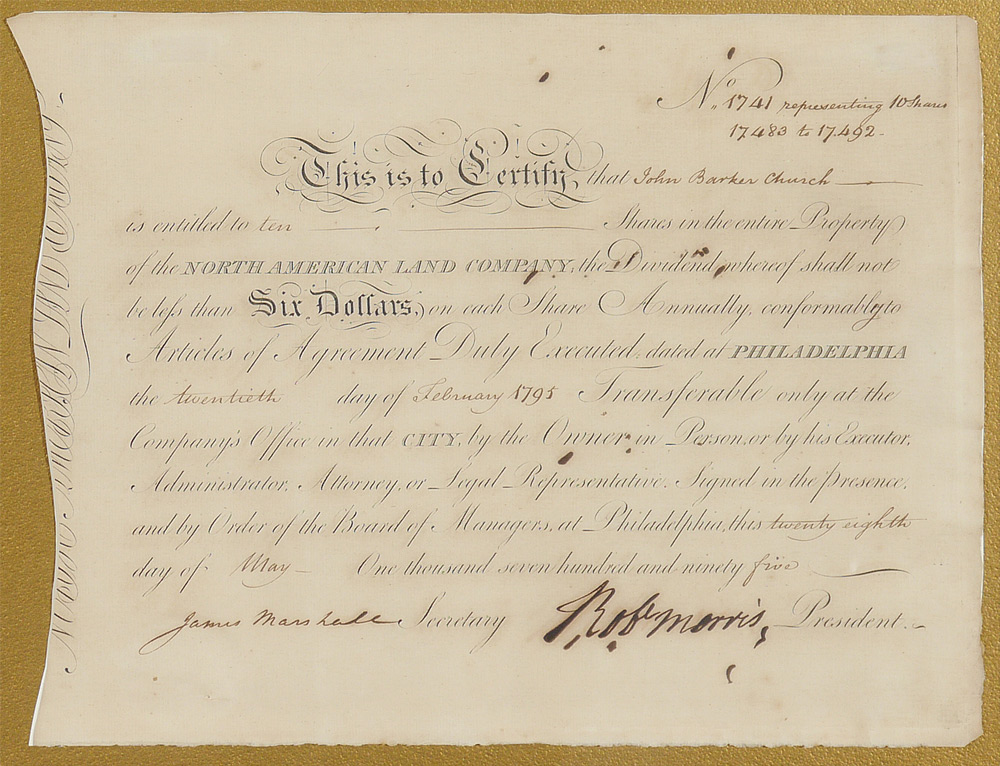 No. 1741 representing 10 Shares
17.483 to 17.492-
This is to Certify, that John Barker Church
is entitled to ten Shares in the entire Property
of the NORTH AMERICAN LAND COMPANY, the Dividend whereof shall not
be less than Six Dollars, on each Share Annually, conformably to
Articles of Agreement Duly Executed, dated at PHILADELPHIA
the twentieth day of February 1795 Transferable only at the
Company's Office in that CITY, by the Owner in Person, or by his Executor,
Administrator, Attorney, or Legal Representative. Signed in the presence,
and by Order of the Board of Managers, at Philadelphia, this twenty eighth
day of May One thousand seven hundred and ninety five
James Marshall Secretary Robt Morris, President.